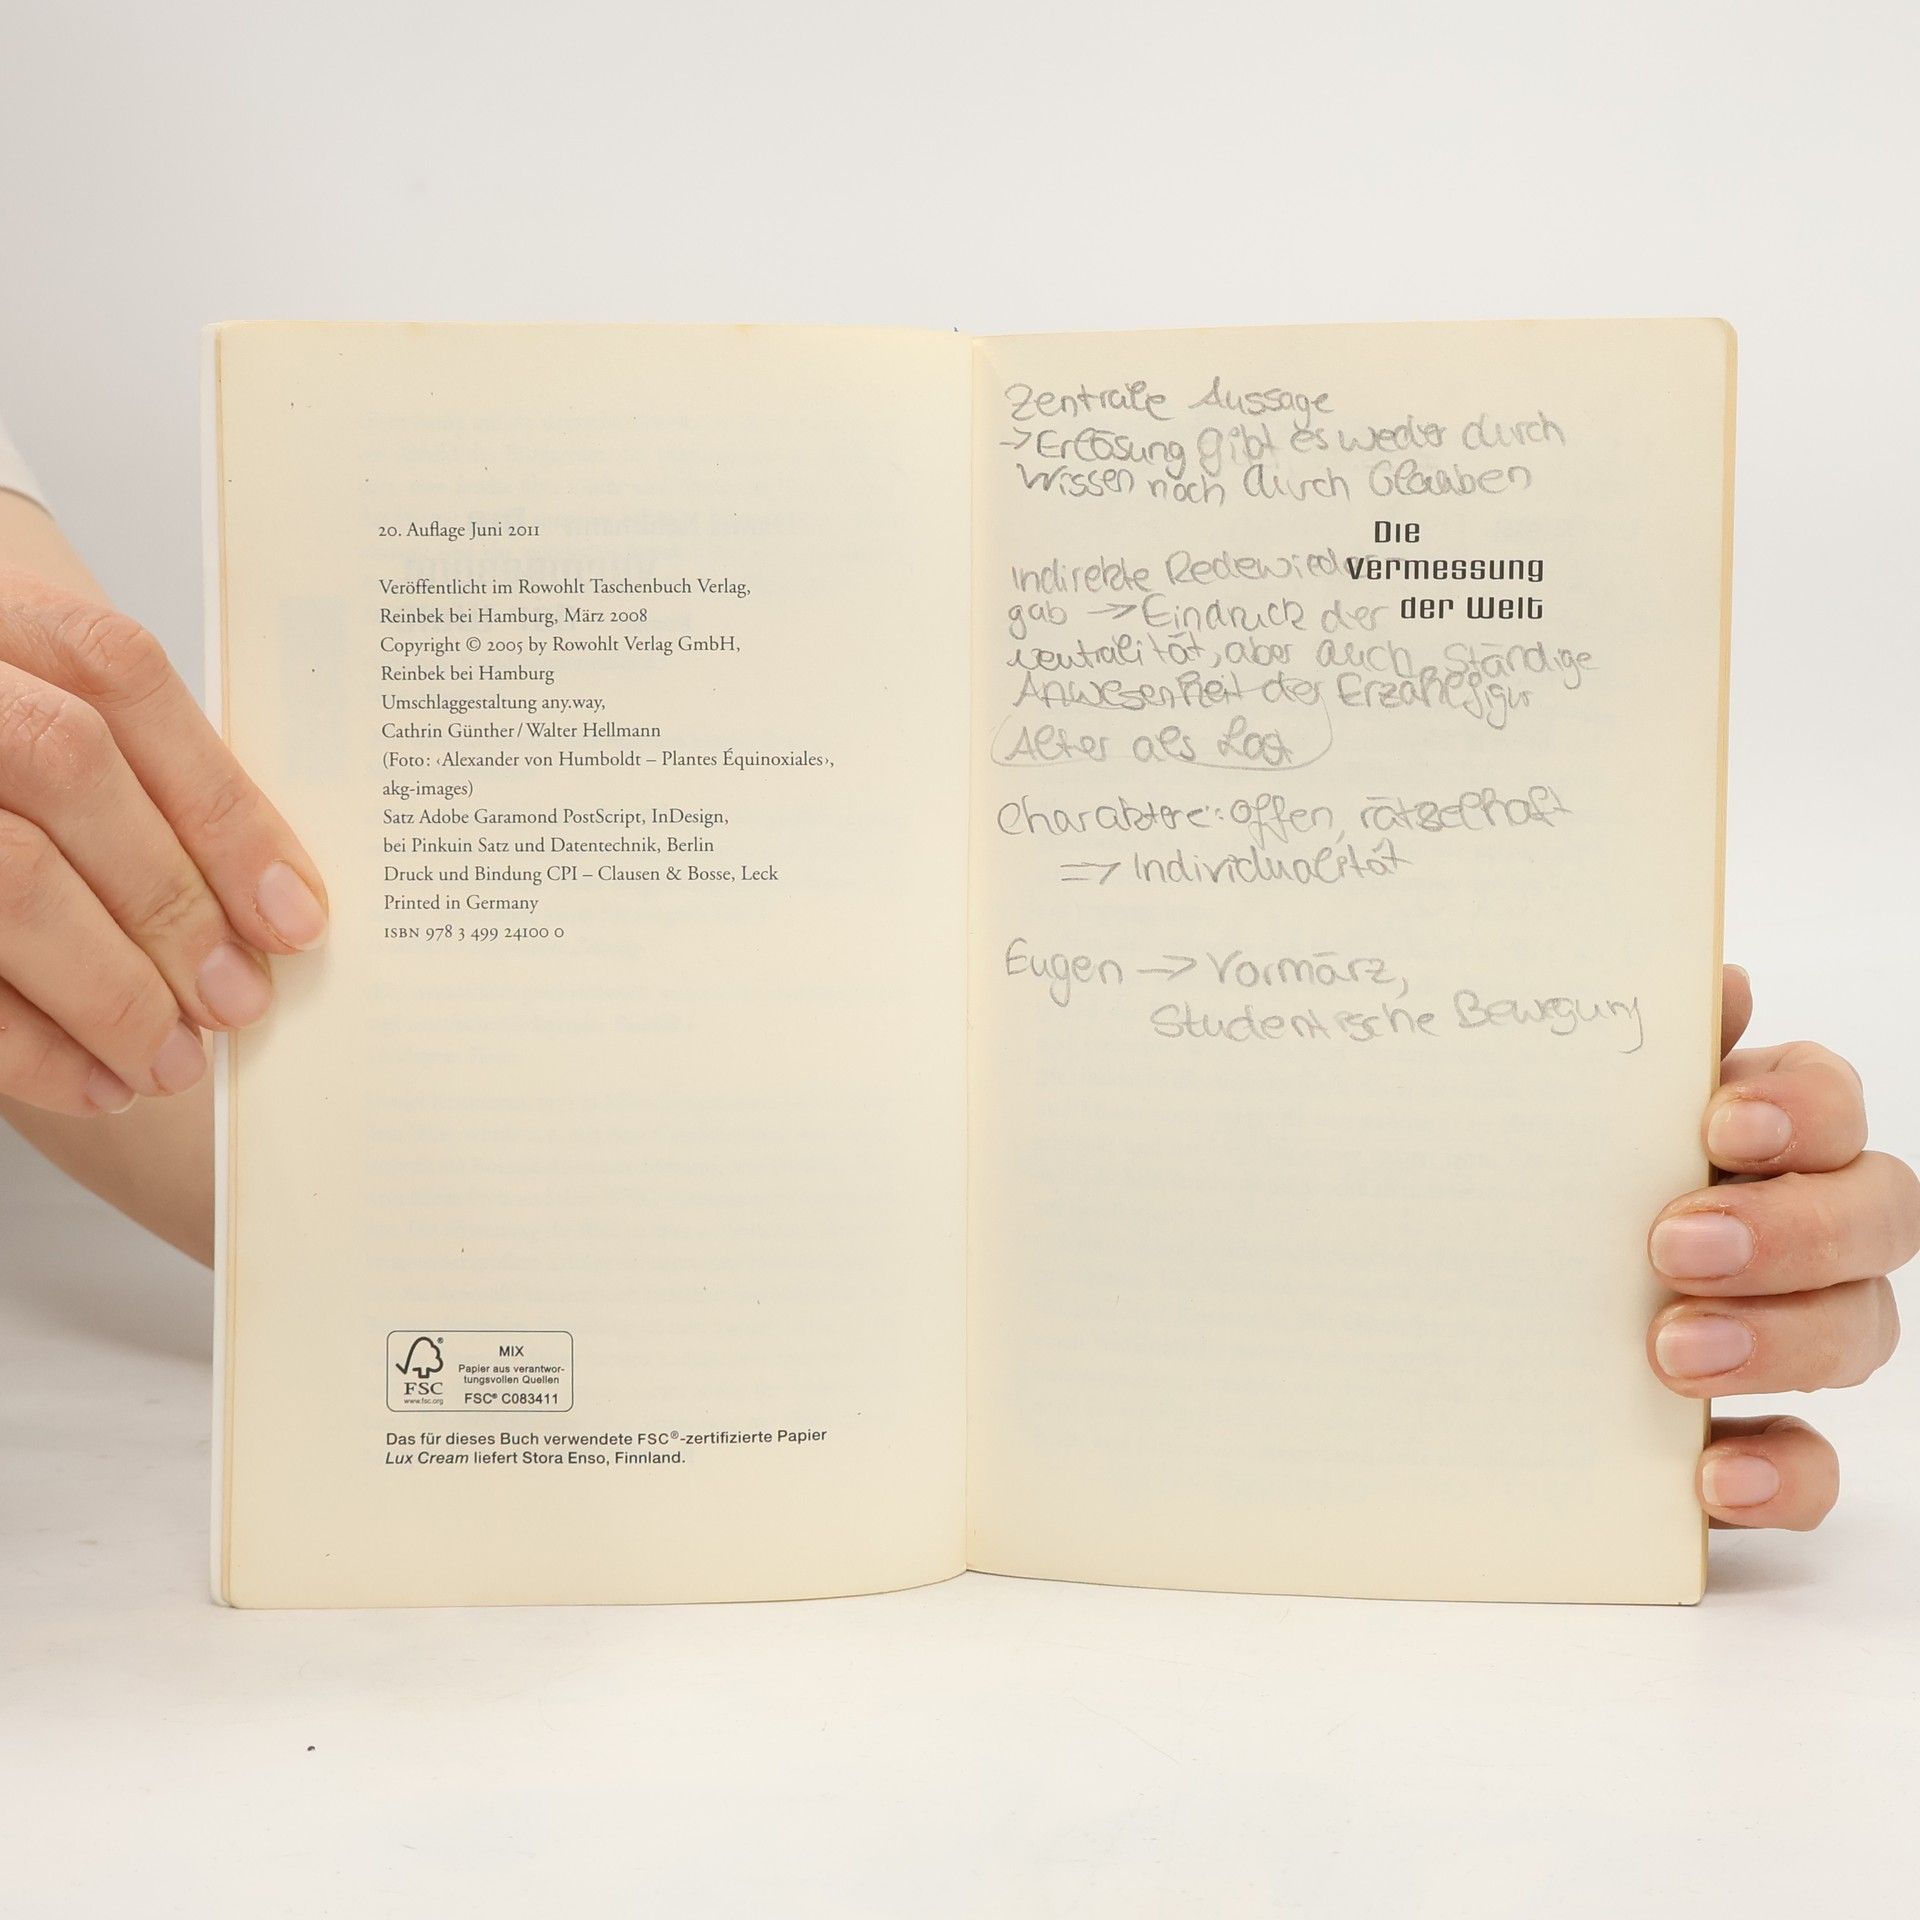 20. Auflage Juni 2011
Veröffentlicht im Rowohlt Taschenbuch Verlag,
Reinbek bei Hamburg, März 2008
Copyright © 2005 by Rowohlt Verlag GmbH,
Reinbek bei Hamburg
Umschlaggestaltung any.way,
Cathrin Günther / Walter Hellmann
(Foto: ‹Alexander von Humboldt – Plantes Équinoxiales›,
akg-images)
Satz Adobe Garamond PostScript, InDesign,
bei Pinkuin Satz und Datentechnik, Berlin
Druck und Bindung CPI – Clausen & Bosse, Leck
Printed in Germany
ISBN 978 3 499 24100 0
FSC®
www.fsc.org
MIX
Papier aus verantwor-
tungsvollen Quellen
FSC® C083411
Das für dieses Buch verwendete FSC®-zertifizierte Papier
Lux Cream liefert Stora Enso, Finnland.
Zentrale Aussage
-> Erlösung gibt es weder durch
Wissen noch durch Glauben
Die
Vermessung
der Welt
Indirekte Redewieder
gab -> Eindruck der
neutralität, aber auch ständige
Anwesenheit der Erzählfigur
Alter als Last
Charaktere: offen, rätselhaft
=> Individualität
Eugen -> Vormärz,
Studentische Bewegung